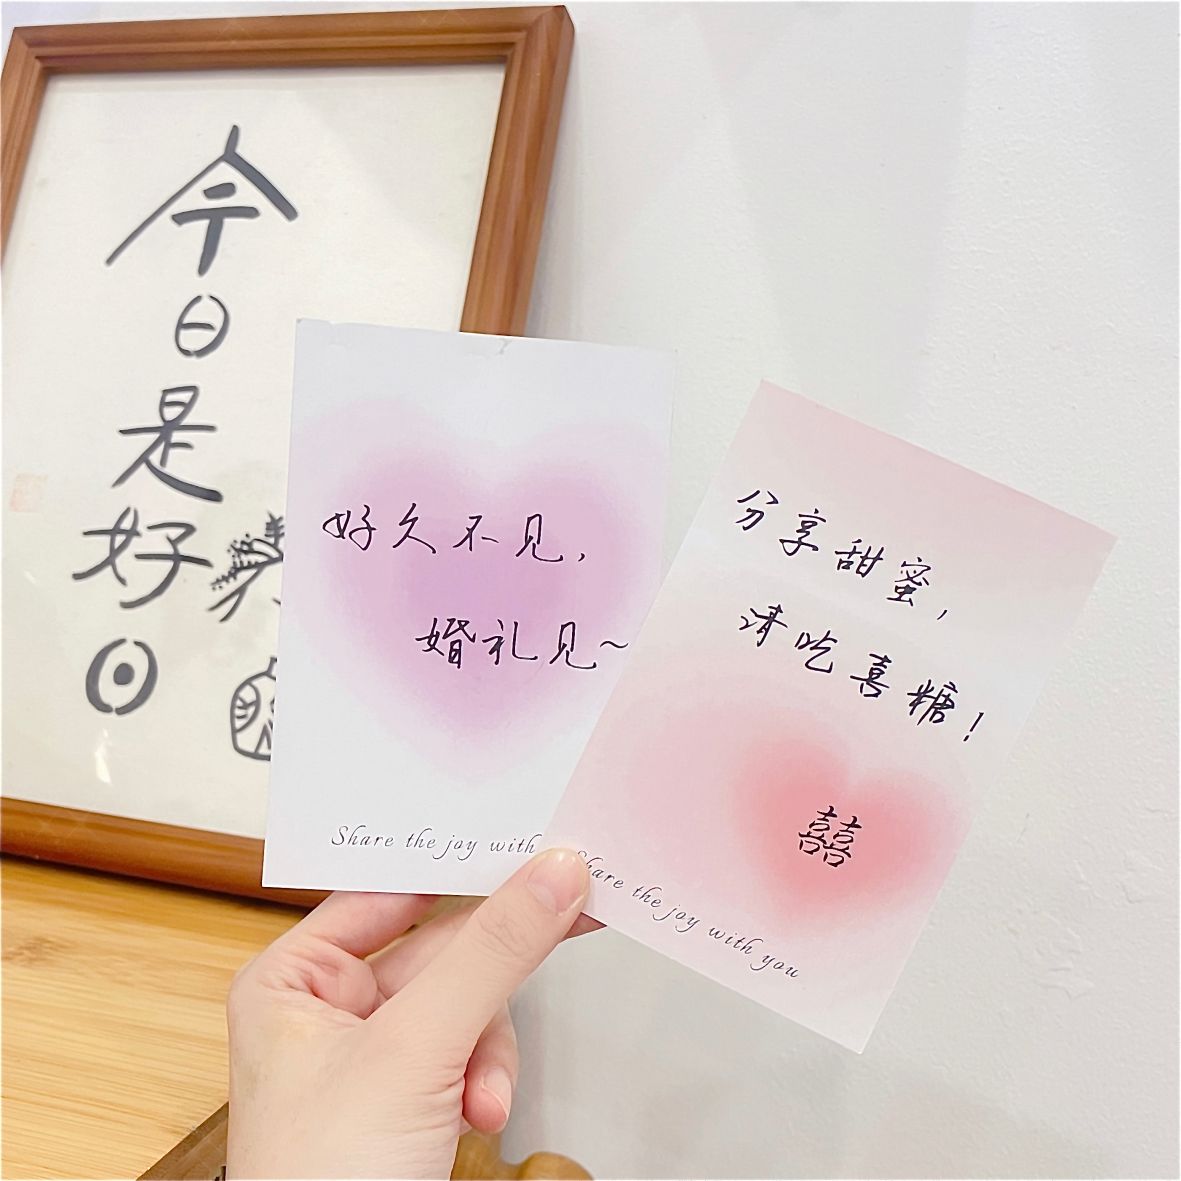 今日是好日
好久不见，
婚礼见~
Share the joy with
分享甜蜜，
请吃喜糖！
囍
Share the joy with you